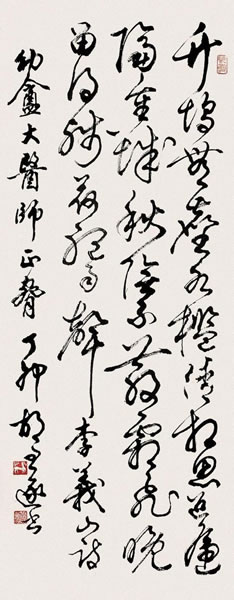 竹塢無塵水檻清相思迢遞
隔重城秋陰不散霜飛晚
留得殘荷聽雨聲 李義山詩
幼盦大醫師正臂 丁卯 胡問遂書